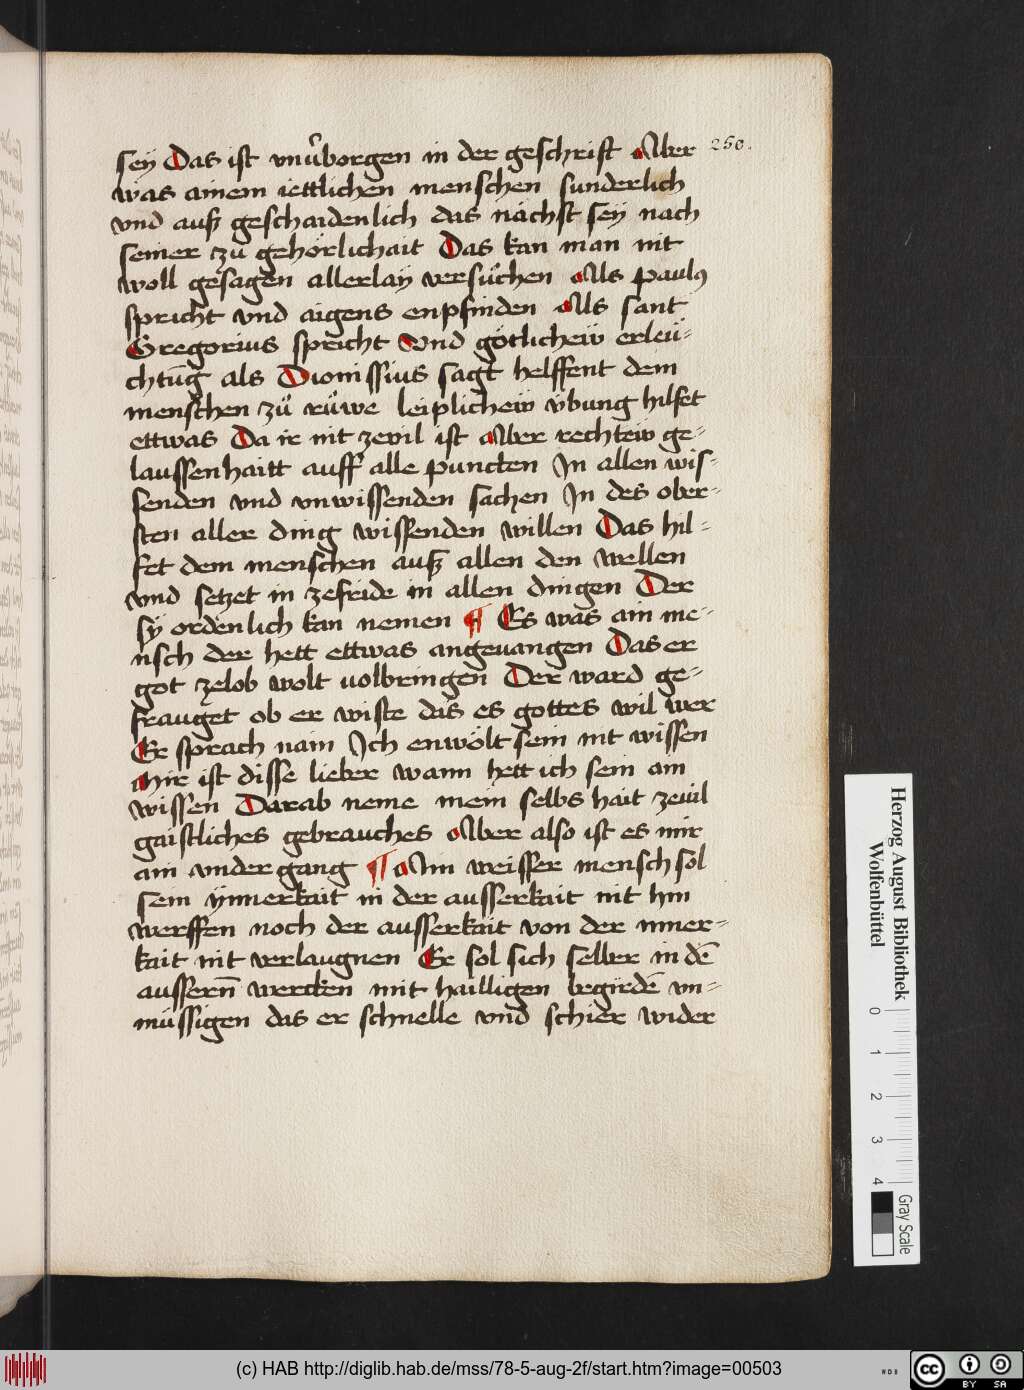 sey Das ist vnůborgen in der geschrift Aber 250.
was ainem iettlichen menschen sunderlich
vnd auß geschaidenlich das nächst sey nach
seiner zů gehörlichait Das kan man nit
woll gesagen allerlay versůchen Als paulꝰ
spricht vnd aigens enpfinden Als sant
Gregorius spricht Vnd götlicheiv erleü-
chtūg als Dionissius sagt helffent dem
menschen zů rüwe leiplicheiv vbung hilfet
ettwas Da ir nit zevil ist Aber rechteiv ge-
laussenhaitt auff alle puncten In allen wis-
senden vnd vnwissenden sachen In des ober-
sten aller ding wissenden willen Das hil-
fet dem menschen auß allen den wellen
vnd setzet in zefride in allen dingen Der
sy ordenlich kan nemen ¶ Es was ain me-
nsch der hett ettwas angeuangen Das er
got zelob wolt uolbringen Der ward ge-
frauget ob er wiste das es gottes wil wer
Er sprach nain Ich enwölt sein nit wissen
Mir ist disse lieber wann hett ich sein ain
wissen Darab neme mein selbs hait zeuil
gaistliches gebrauches Aber also ist es mir
ain vnder gang ¶ Ain weisser mensch sol
sein ynnerkait in der ausserkait nit hin
werffen noch der ausserkait von der inner-
kait nit verlaugnen Er sol sich selber in dē
aussern̄ wercken mit hailligen begirdē vn-
müssigen das er schnelle vnd schier wider
Herzog August Bibliothek
Wolfenbüttel
0 1 2 3 4
Gray Scale
(c) HAB http://diglib.hab.de/mss/78-5-aug-2f/start.htm?image=00503
cc BY SA